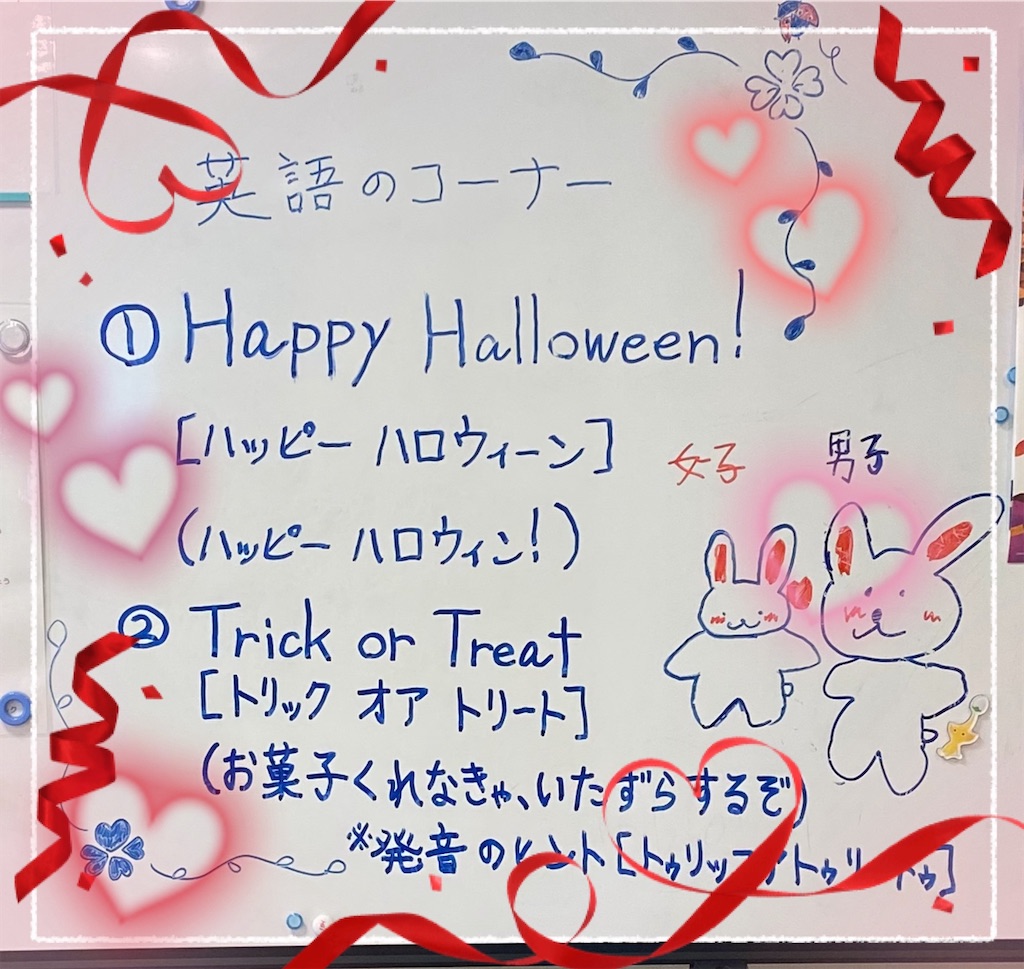 英語のコーナー
① Happy Halloween!
[ハッピー ハロウィーン]
(ハッピー ハロウィン!)
女子 男子
② Trick or Treat
[トリック オア トリート]
(お菓子くれなきゃ、いたずらするぞ)
※発音のヒント[トゥリッ